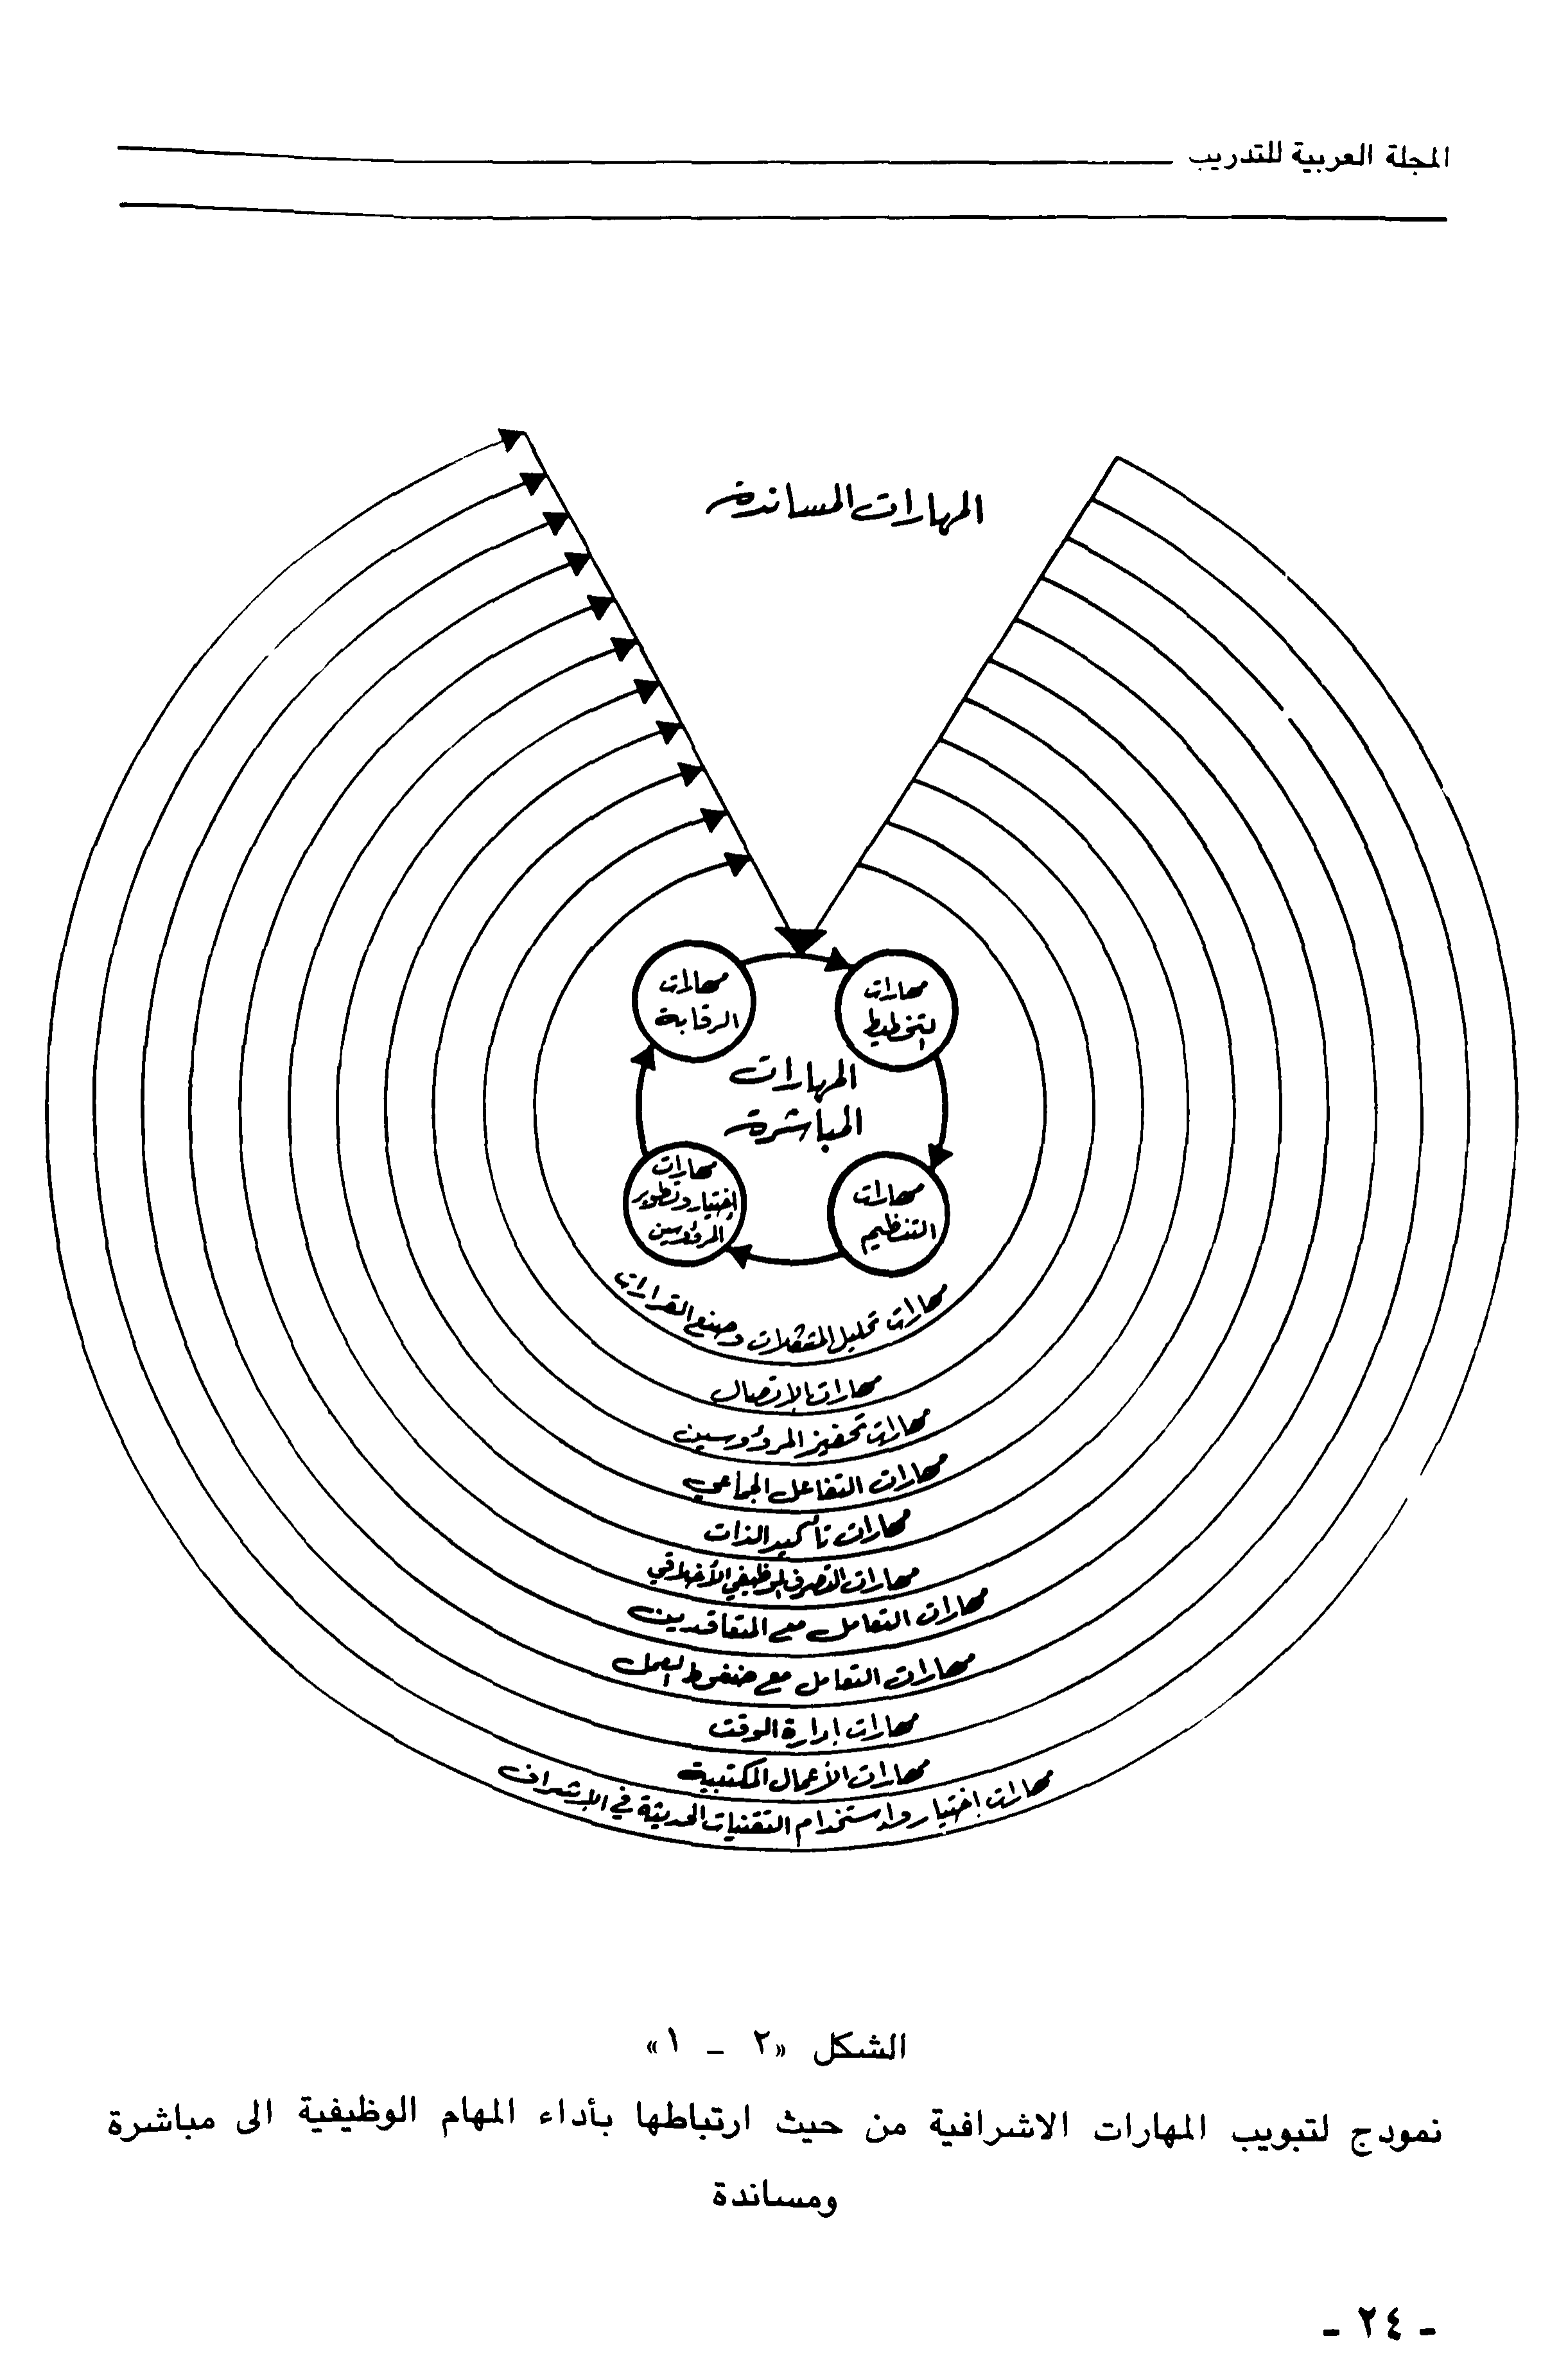 المجلة العربية للتدريب
المهارات المساندة
مهارات
الرقابة
مهارات
التخطيط
المهارات
المباشرة
مهارات
إختيار وتطوير
المرؤوسين
مهارات
التنظيم
مهارات تحليل المشكلات وصنع القرارات
مهارات الإتصال
مهارات تحفيز المرؤوسين
مهارات التفاعل الجماعي
مهارات تأكيد الذات
مهارات التصرف الوظيفي الأخلاقي
مهارات التعامل مع المتعاقدين
مهارات التعامل مع ضغوط العمل
مهارات إدارة الوقت
مهارات الأعمال المكتبية
مهارات إختيار وإستخدام التقنيات الحديثة في الإشراف
الشكل «٢ - ١»
نمودج لتبويب المهارات الاشرافية من حيث ارتباطها بأداء المهام الوظيفية الى مباشرة
ومساندة
- ٢٤ -